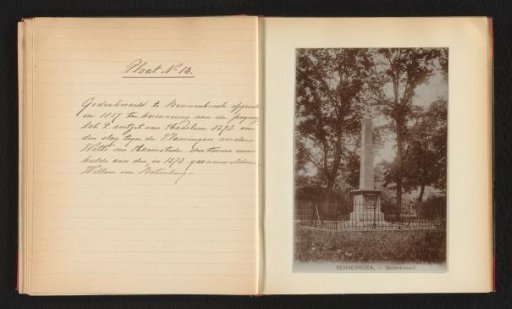 Plaat No 13.
Gedenknaald te Bennebroek opgericht
in 1817 ter herinnering aan de poging
tot ontzet van Haarlem 1573 en
den slag tegen de Vlamingen onder
Witte van Haemstede, dus tevens een
hulde aan den in 1573 gesneuvelden
Willem van
BENNEBROEK. — Gedenknaald.